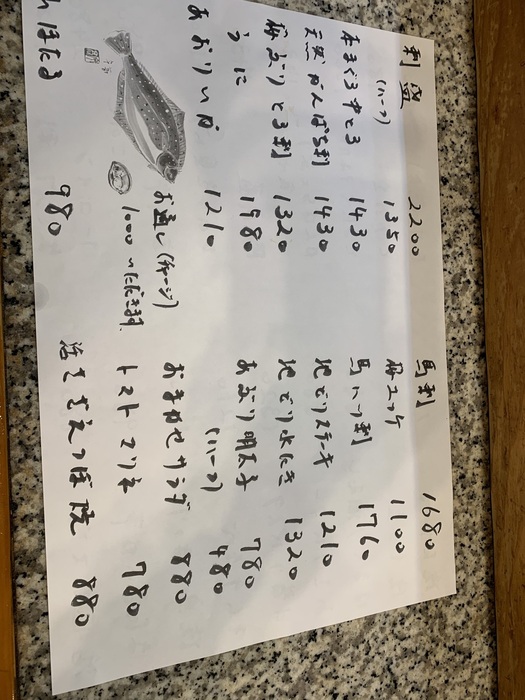 刺盛 2200
(ハーフ) 1350
本まぐろ中とろ 1430
天然かんぱち刺 1430
梅ぶりとろ刺 1320
うに 1980
あおりいか 1210
お通し(チャージ)
1000いただきます。
ほたる 980
馬刺 1680
桜ユッケ 1100
馬ハツ刺 1760
地どりステーキ 1210
地どり水たき 1320
あぶり明太子 780
(ハーフ) 480
おまかせサラダ 880
トマトマリネ 780
活さざえつぼ焼 880